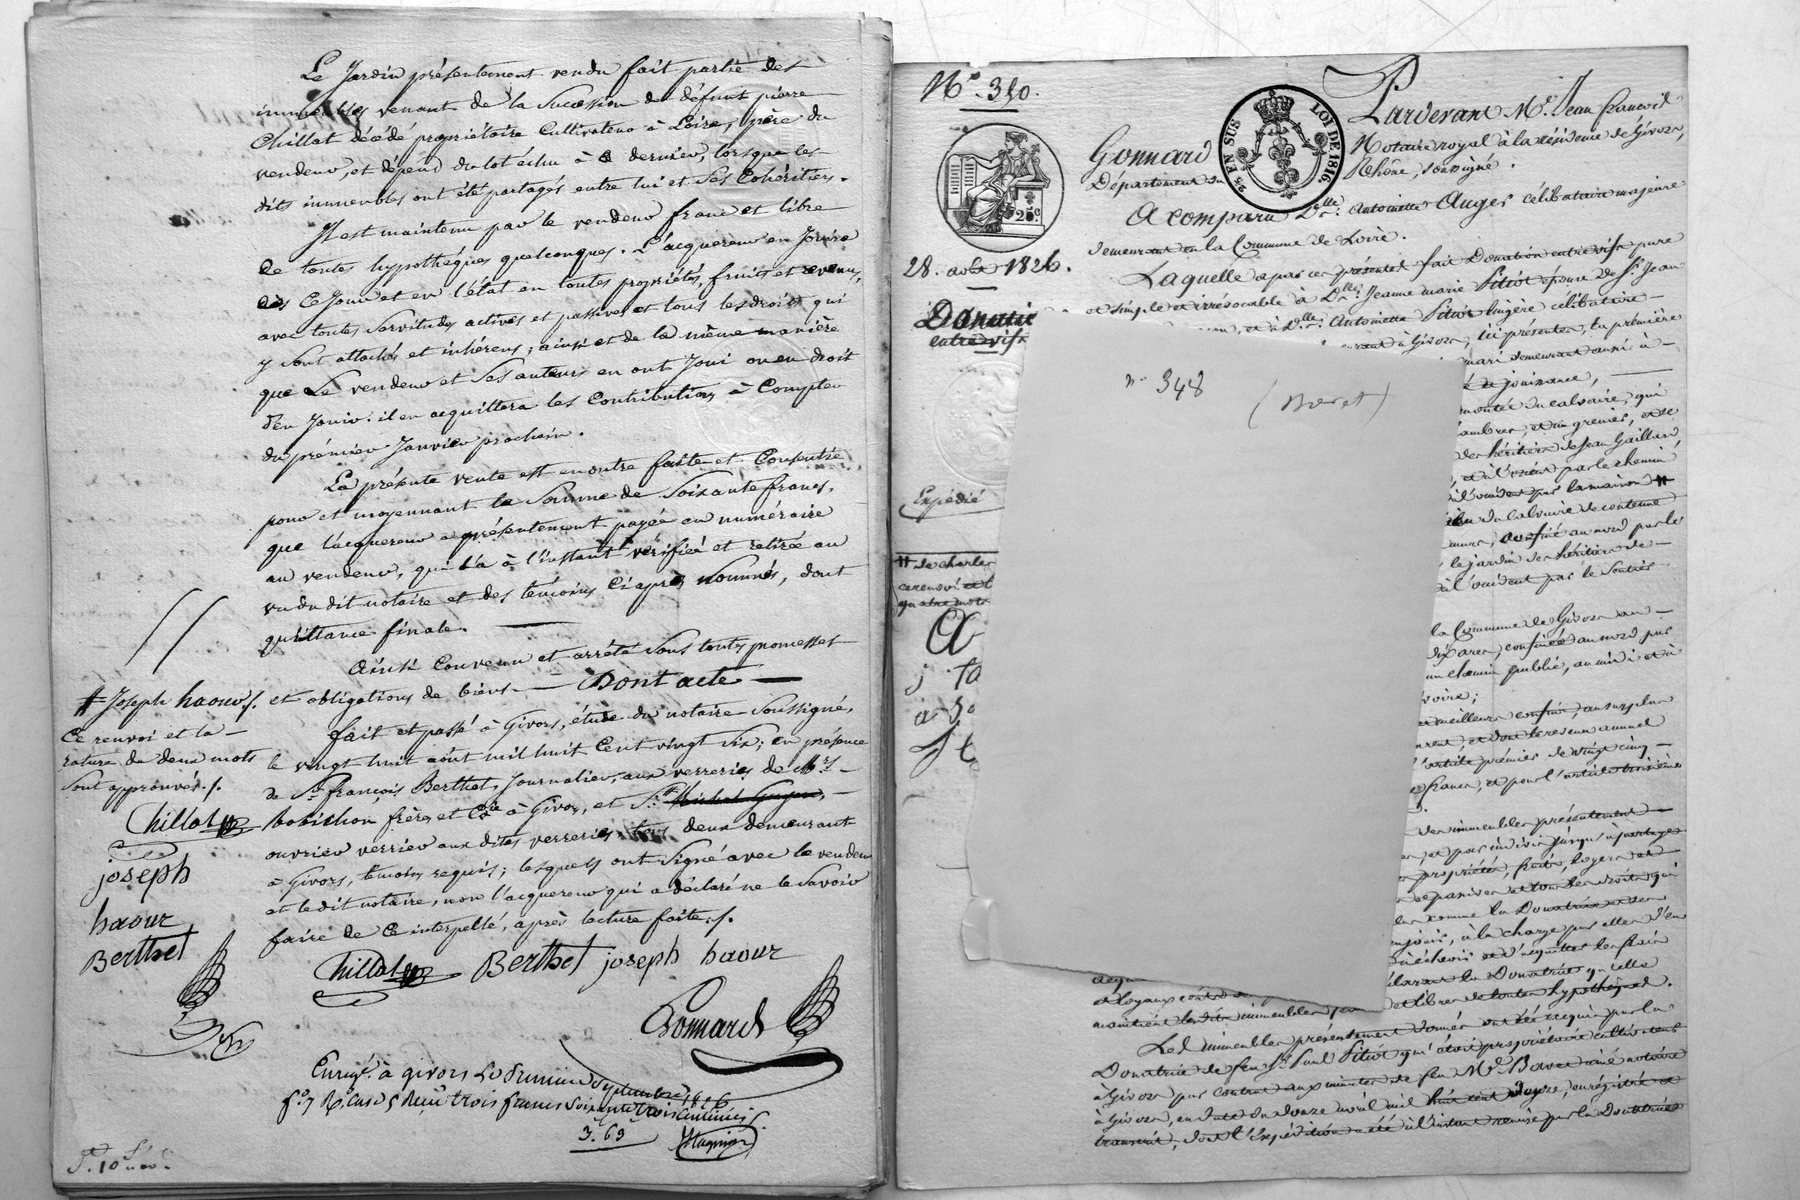 Le Jardin présentement vendu fait partie des
immeubles venant de la succession de défunt pierre
Chillat décédé propriétaire Cultivateur à Loire, père du
vendeur, et dépend du lot échu à ce dernier, lorsque les
dits immeubles ont été partagés entre lui et ses Cohéritiers.
Il est maintenu par le vendeur franc et libre
de toutes hypothéques quelconques. L'acquereur en Jouira
dès ce Jour et en l'état en toutes propriétés, fruits et revenus,
avec toutes servitudes actives et passives et tous les droits qui
y sont attachés et inhérens; ainsi et de la même manière
que Le vendeur et ses auteurs en ont Joui ou eu droit
d'en Jouir. il en acquittera les Contributions à Compter
du prémier Janvier prochain.
La présente vente est en outre faite et Consentie
pour et moyennant la somme de Soixante francs,
que l'acquereur a présentement payée en numéraire
au vendeur, qui l'a à l'instant vérifiée et retirée au
vu du dit notaire et des témoins Ci après nommés, dont
quittance finale.
Ainsi Convenu et arrêté sous toutes promesses
et obligations de biens. — Dont acte —
fait et passé à Givors, étude du notaire soussigné,
le vingt huit août mil huit Cent vingt six; en présence
de Sr. françois Berthet, Journalier aux verreries de MMrs
bobichon frères et Cie à Givors, et Sr.
ouvrier verrier aux dites verreries tous deux demeurant
à Givors, témoins requis; lesquels ont signé avec le vendeur
et le dit notaire, non l'acquereur qui a déclaré ne le savoir
faire de ce interpellé, après lecture faite./.
# Joseph haour./.
Ce renvoi et la
rature de deux mots
sont approuvés./.
Chillat
joseph
haour
Berthet
Chillat Berthet joseph haour
Gonnard
Enregé. à givors Le premier Septembre 1826
fo. 7 Ro. case 5 Reçu trois francs soixante trois centimes
3.63
No. 350.
28. août 1826.
Donation
entre vifs
Expédié
# de charles
25 c
25 EN SUS
LOI DE 1816.
Pardevant Me. Jean francois
Gonnard Notaire royal à la résidence de Givors,
Département du Rhône, soussigné.
A comparu Dlle. Antoinette Auger célibataire majeure
demeurant en la Commune de Loire.
Laquelle a par ces présentes fait Donation entre vifs pure
et simple et irrévocable à Dlle. Jeanne marie Pitiot épouse de Sr. Jean
et à Dlle. Antoinette Pitiot lingère célibataire
à Givors, ici présentes, la prémière
mari demeurant aussi à
de jouissance,
montée du calvaire, qui
chambres, et un grenier,
des héritiers de Jean Gaillard
par le chemin
l'occident par la maison #
du calvaire de contenue
confiné au nord par le
le jardin des héritiers de
l'occident par le
la Commune de Givors au
dix ares, confinée au nord par
un chemin public, au midi et à
et dont le revenu annuel
prémier de vingt cinq
francs, et pour l'article troisième
des immeubles présentement
jusqu'à partage
propriété, fruits, loyers et
et tous les droits qui
comme la Donatrice et ses
à la charge par elles d'en
et d'acquitter les frais
la Donatrice qu'elle
et loyaux coûts
maintient les dits immeubles et libres de toutes hypothèques.
Les immeubles présentement donnés
Donatrice de feu Sr. Paul Pitiot qui étoit propriétaire cultivateur
à Givors par contrat aux minutes de feu Me. ainé notaire
à Givors, en date du douze avril mil huit cent enrégistré et
transcrit, dont l'expédition a été à l'instant remise par la Donatrice
no. 348